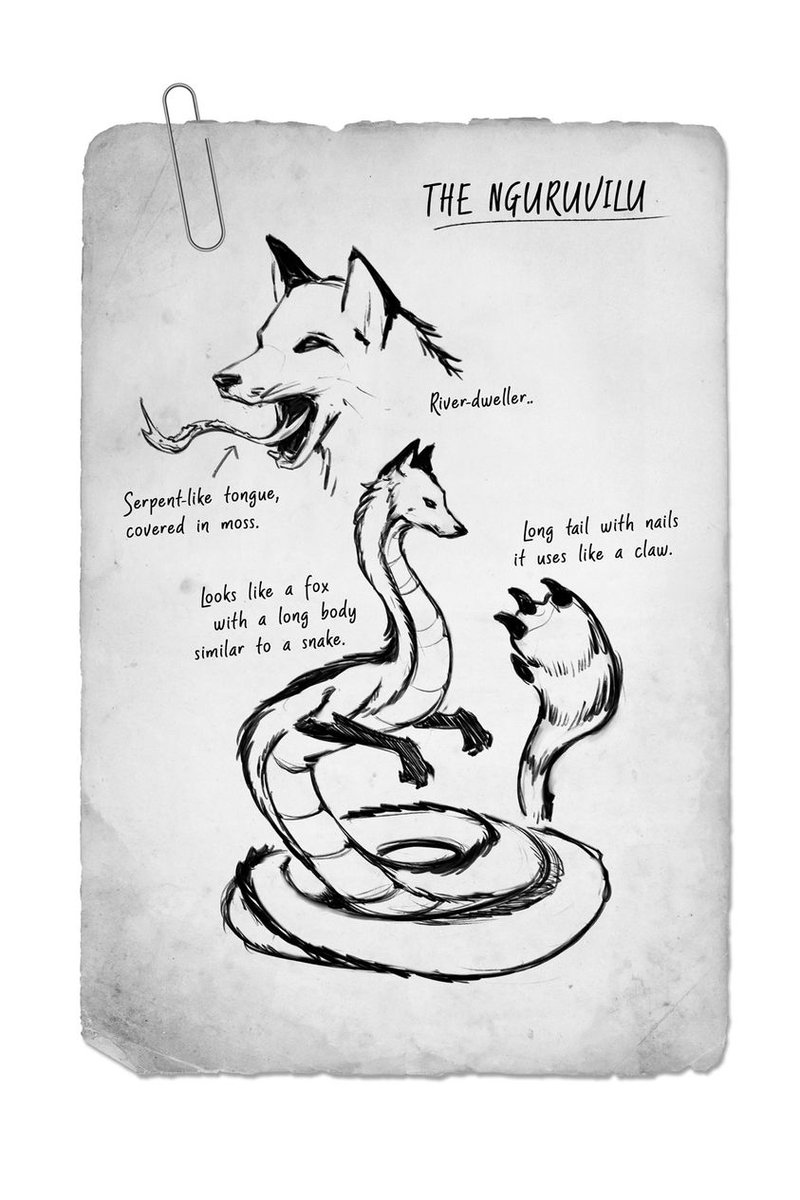 THE NGURUVILU
River-dweller..
Serpent-like tongue,
covered in moss.
Long tail with nails
it uses like a claw.
Looks like a fox
with a long body
similar to a snake.